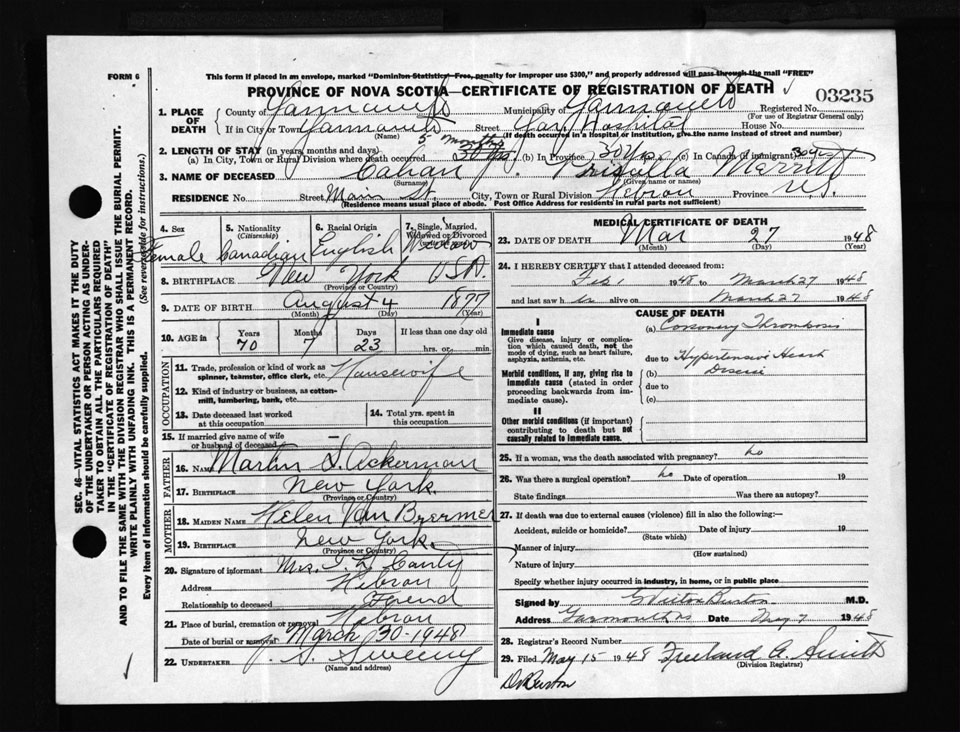 FORM 6
This form if placed in an envelope, marked "Dominion Statistics—Free, penalty for improper use $300," and properly addressed will pass through the mail "FREE"
PROVINCE OF NOVA SCOTIA—CERTIFICATE OF REGISTRATION OF DEATH
03235
1. PLACE OF DEATH
County of Yarmouth Municipality of Yarmouth Registered No.
(For use of Registrar General only)
If in City or Town Yarmouth Street Yar. Hospital House No.
(Name) (If death occurred in a Hospital or institution, give the name instead of street and number)
2. LENGTH OF STAY (in years, months and days) 5 months
(a) In City, Town or Rural Division where death occurred 30 yrs. (b) In Province 30 Yrs. (c) In Canada (if immigrant) 30 yr
3. NAME OF DECEASED Cahan Prisilla Merritt
(Surname) (Given name or names)
RESIDENCE No. Street Main St. City, Town or Rural Division Hebron Province N.S.
(Residence means usual place of abode. Post Office Address for residents in rural parts not sufficient)
4. Sex 5. Nationality (Citizenship) 6. Racial Origin 7. Single, Married, Widowed or Divorced
Female Canadian English Widow
8. BIRTHPLACE New York USA.
(Province or Country)
9. DATE OF BIRTH August 4 1877
(Month) (Day) (Year)
10. AGE in Years Months Days If less than one day old
70 7 23 hrs. or min.
OCCUPATION
11. Trade, profession or kind of work as spinner, teamster, office clerk, etc. Housewife
12. Kind of industry or business, as cotton-mill, lumbering, bank, etc.
13. Date deceased last worked at this occupation
14. Total yrs. spent in this occupation
15. If married give name of wife or husband of deceased —
FATHER
16. NAME Martin S. Ackerman
17. BIRTHPLACE New York.
(Province or Country)
MOTHER
18. MAIDEN NAME Helen Van Bremer
19. BIRTHPLACE New York.
(Province or Country)
20. Signature of informant Mrs.
Address Hebron
Relationship to deceased Friend
21. Place of burial, cremation or removal Hebron
Date of burial or removal March 30-1948
22. UNDERTAKER Sweeny
(Name and address)
MEDICAL CERTIFICATE OF DEATH
23. DATE OF DEATH Mar 27 1948
(Month) (Day) (Year)
24. I HEREBY CERTIFY that I attended deceased from:
Feb 1 1948 to March 27 1948
and last saw h er alive on March 27 1948
CAUSE OF DEATH
I
Immediate cause
Give disease, injury or complication which caused death, not the mode of dying, such as heart failure, asphyxia, asthenia, etc.
(a) Coronary Thrombosis
due to Hypertensive Heart
Disease
Morbid conditions, if any, giving rise to immediate cause (stated in order proceeding backwards from immediate cause).
(b)
due to
(c)
II
Other morbid conditions (if important) contributing to death but not causally related to immediate cause.
25. If a woman, was the death associated with pregnancy? no
26. Was there a surgical operation? no Date of operation 19
State findings Was there an autopsy?
27. If death was due to external causes (violence) fill in also the following:—
Accident, suicide or homicide? Date of injury 19
(State which)
Manner of injury
(How sustained)
Nature of injury
Specify whether injury occurred in industry, in home, or in public place
Signed by G Victor Burton M.D.
Address Yarmouth NS Date May 7 1948
28. Registrar's Record Number
29. Filed May 15 1948 Freeland A. Smith
(Division Registrar)
Dr Burton
SEC. 46—VITAL STATISTICS ACT MAKES IT THE DUTY
OF THE UNDERTAKER OR PERSON ACTING AS UNDERTAKER TO OBTAIN ALL THE PARTICULARS REQUIRED
IN THE "CERTIFICATE OF REGISTRATION OF DEATH"
AND TO FILE THE SAME WITH THE DIVISION REGISTRAR WHO SHALL ISSUE THE BURIAL PERMIT.
WRITE PLAINLY WITH UNFADING INK. THIS IS A PERMANENT RECORD.
Every item of information should be carefully supplied. (See reverse side for instructions.)